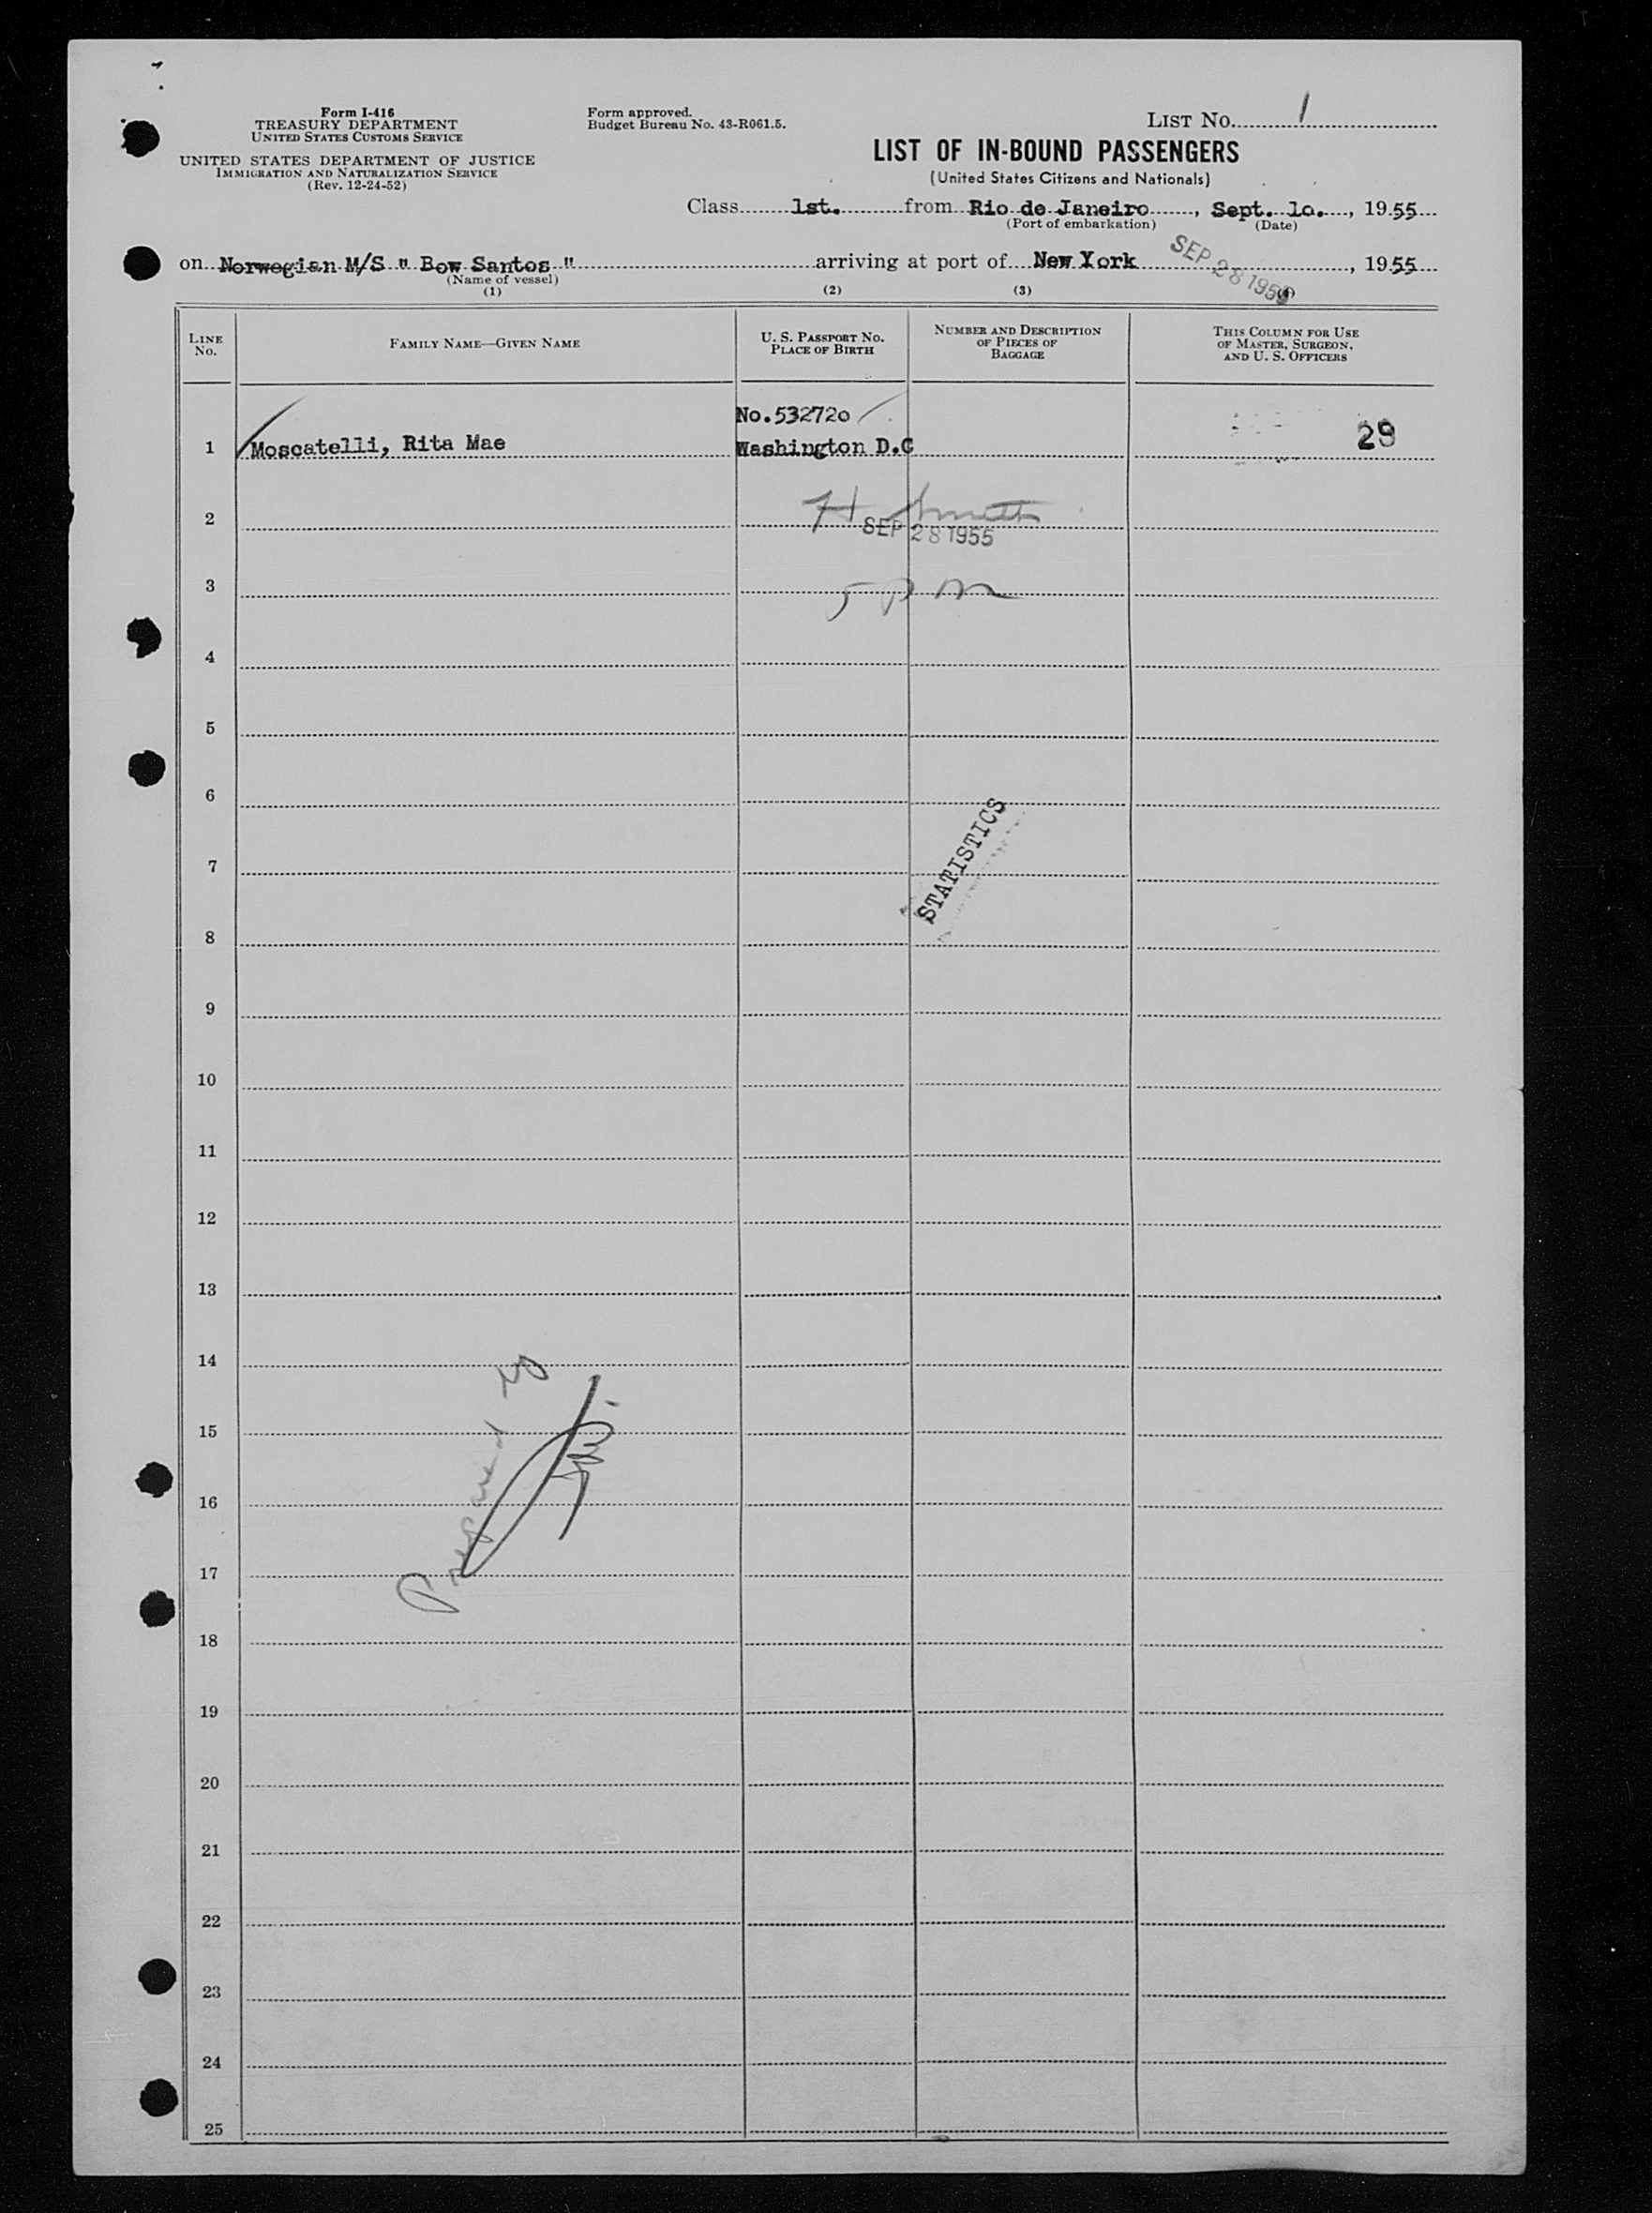 Form I-416
TREASURY DEPARTMENT
UNITED STATES CUSTOMS SERVICE
UNITED STATES DEPARTMENT OF JUSTICE
IMMIGRATION AND NATURALIZATION SERVICE
(Rev. 12-24-52)
Form approved.
Budget Bureau No. 43-R061.5.
LIST No. 1
LIST OF IN-BOUND PASSENGERS
(United States Citizens and Nationals)
Class 1st. from Rio de Janeiro, Sept. 10., 1955
(Port of embarkation) (Date)
on Norwegian M/S " Bow Santos " arriving at port of New York SEP 28 1955, 1955
(Name of vessel)
(1) (2) (3) (4)
LINE No. FAMILY NAME—GIVEN NAME U. S. PASSPORT No. PLACE OF BIRTH NUMBER AND DESCRIPTION OF PIECES OF BAGGAGE THIS COLUMN FOR USE OF MASTER, SURGEON, AND U. S. OFFICERS
No.532720
1 Moscatelli, Rita Mae Washington D.C 29
2 H Smith
SEP 28 1955
3 5 PM
4
5
6
STATISTICS
7
8
9
10
11
12
13
14
Prepared by
15
16
17
18
19
20
21
22
23
24
25